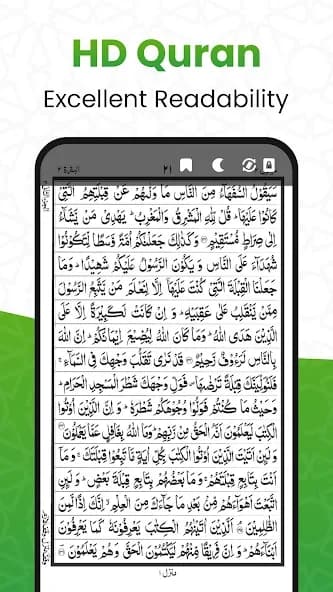 HD Quran
Excellent Readability
البقرة ٢
٢١
سَيَقُوۡلُ السُّفَهَآءُ مِنَ النَّاسِ مَا وَلّٰٮهُمۡ عَنۡ قِبۡلَتِهِمُ الَّتِىۡ
كَانُوۡا عَلَيۡهَا ؕ قُلۡ لِّلّٰهِ الۡمَشۡرِقُ وَالۡمَغۡرِبُ ؕ يَهۡدِىۡ مَنۡ يَّشَآءُ
اِلٰى صِرَاطٍ مُّسۡتَقِيۡمٍ ۝ وَكَذٰلِكَ جَعَلۡنٰكُمۡ اُمَّةً وَّسَطًا لِّتَکُوۡنُوۡا
شُهَدَآءَ عَلَى النَّاسِ وَيَكُوۡنَ الرَّسُوۡلُ عَلَيۡكُمۡ شَهِيۡدًا ؕ وَمَا
جَعَلۡنَا الۡقِبۡلَةَ الَّتِىۡ كُنۡتَ عَلَيۡهَاۤ اِلَّا لِنَعۡلَمَ مَنۡ يَّتَّبِعُ الرَّسُوۡلَ
مِمَّنۡ يَّنۡقَلِبُ عَلٰى عَقِبَيۡهِ ؕ وَاِنۡ كَانَتۡ لَكَبِيۡرَةً اِلَّا عَلَى
الَّذِيۡنَ هَدَى اللّٰهُ ؕ وَمَا كَانَ اللّٰهُ لِيُضِيْعَ اِيۡمَانَكُمۡ ؕ اِنَّ اللّٰهَ
بِالنَّاسِ لَرَءُوۡفٌ رَّحِيۡمٌ ۝ قَدۡ نَرٰى تَقَلُّبَ وَجۡهِكَ فِى السَّمَآءِ ۚ
فَلَـنُوَلِّيَنَّكَ قِبۡلَةً تَرۡضٰٮهَا ۖ فَوَلِّ وَجۡهَكَ شَطۡرَ الۡمَسۡجِدِ الۡحَـرَامِ ؕ
وَحَيۡثُ مَا كُنۡتُمۡ فَوَلُّوۡا وُجُوۡهَكُمۡ شَطۡرَهٗ ؕ وَاِنَّ الَّذِيۡنَ اُوۡتُوا
الۡكِتٰبَ لَيَـعۡلَمُوۡنَ اَنَّهُ الۡحَـقُّ مِنۡ رَّبِّهِمۡ ؕ وَمَا اللّٰهُ بِغَافِلٍ عَمَّا يَعۡمَلُوۡنَ ۝
وَلَٮِٕنۡ اَ تَيۡتَ الَّذِيۡنَ اُوۡتُوا الۡكِتٰبَ بِكُلِّ اٰيَةٍ مَّا تَبِعُوۡا قِبۡلَتَكَ ۚ وَمَاۤ
اَنۡتَ بِتَابِعٍ قِبۡلَتَهُمۡ ۚ وَمَا بَعۡضُهُمۡ بِتَابِعٍ قِبۡلَةَ بَعۡضٍ ؕ وَلَٮِٕنِ
اتَّبَعۡتَ اَهۡوَآءَهُمۡ مِّنۡۢ بَعۡدِ مَا جَآءَكَ مِنَ الۡعِلۡمِ ۙ اِنَّكَ اِذًا لَّمِنَ
الظّٰلِمِيۡنَ ۝ اَلَّذِيۡنَ اٰتَيۡنٰهُمُ الۡكِتٰبَ يَعۡرِفُوۡنَهٗ كَمَا يَعۡرِفُوۡنَ
اَبۡنَآءَهُمۡ ؕ وَاِنَّ فَرِيۡقًا مِّنۡهُمۡ لَيَكۡتُمُوۡنَ الۡحَـقَّ وَهُمۡ يَعۡلَمُوۡنَ ۝
منزل ۱